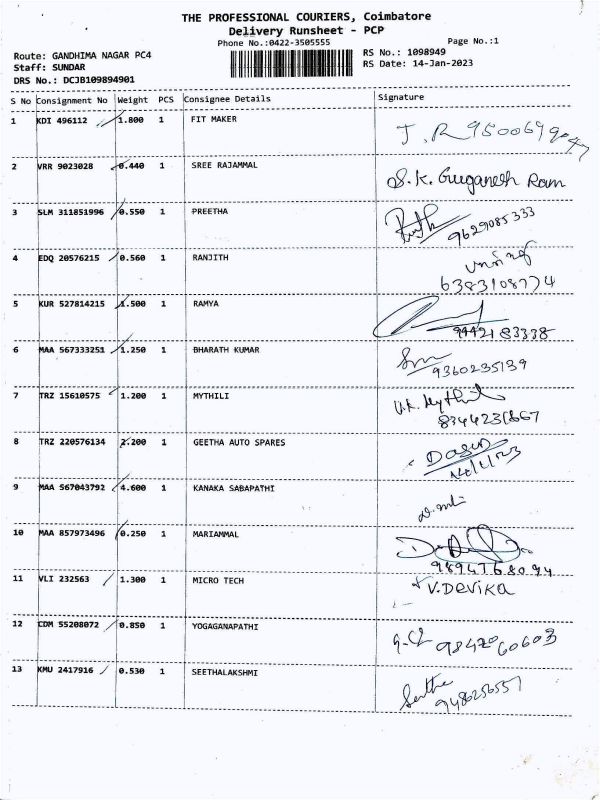 THE PROFESSIONAL COURIERS, Coimbatore
Delivery Runsheet - PCP
Phone No.:0422-3505555 Page No.:1
Route: GANDHIMA NAGAR PC4 RS No.: 1098949
Staff: SUNDAR RS Date: 14-Jan-2023
DRS No.: DCJB109894901
S No Consignment No Weight PCS Consignee Details Signature
1 KDI 496112 1.800 1 FIT MAKER
J.R
2 VRR 9023028 0.440 1 SREE RAJAMMAL
S.K. Guruganesh Ram
3 SLM 311851996 0.550 1 PREETHA
9629085333
4 EDQ 20576215 0.560 1 RANJITH
6383108774
5 KUR 527814215 1.500 1 RAMYA
9442183338
6 MAA 567333251 1.250 1 BHARATH KUMAR
9360235139
7 TRZ 15610575 1.200 1 MYTHILI
V.K. Mythili
8 TRZ 220576134 2.200 1 GEETHA AUTO SPARES
14/1/23
9 MAA 567043792 4.600 1 KANAKA SABAPATHI
10 MAA 857973496 0.250 1 MARIAMMAL
9894768094
11 VLI 232563 1.300 1 MICRO TECH
V.DEVIKA
12 CDM 55208072 0.850 1 YOGAGANAPATHI
9842060603
13 KMU 2417916 0.530 1 SEETHALAKSHMI